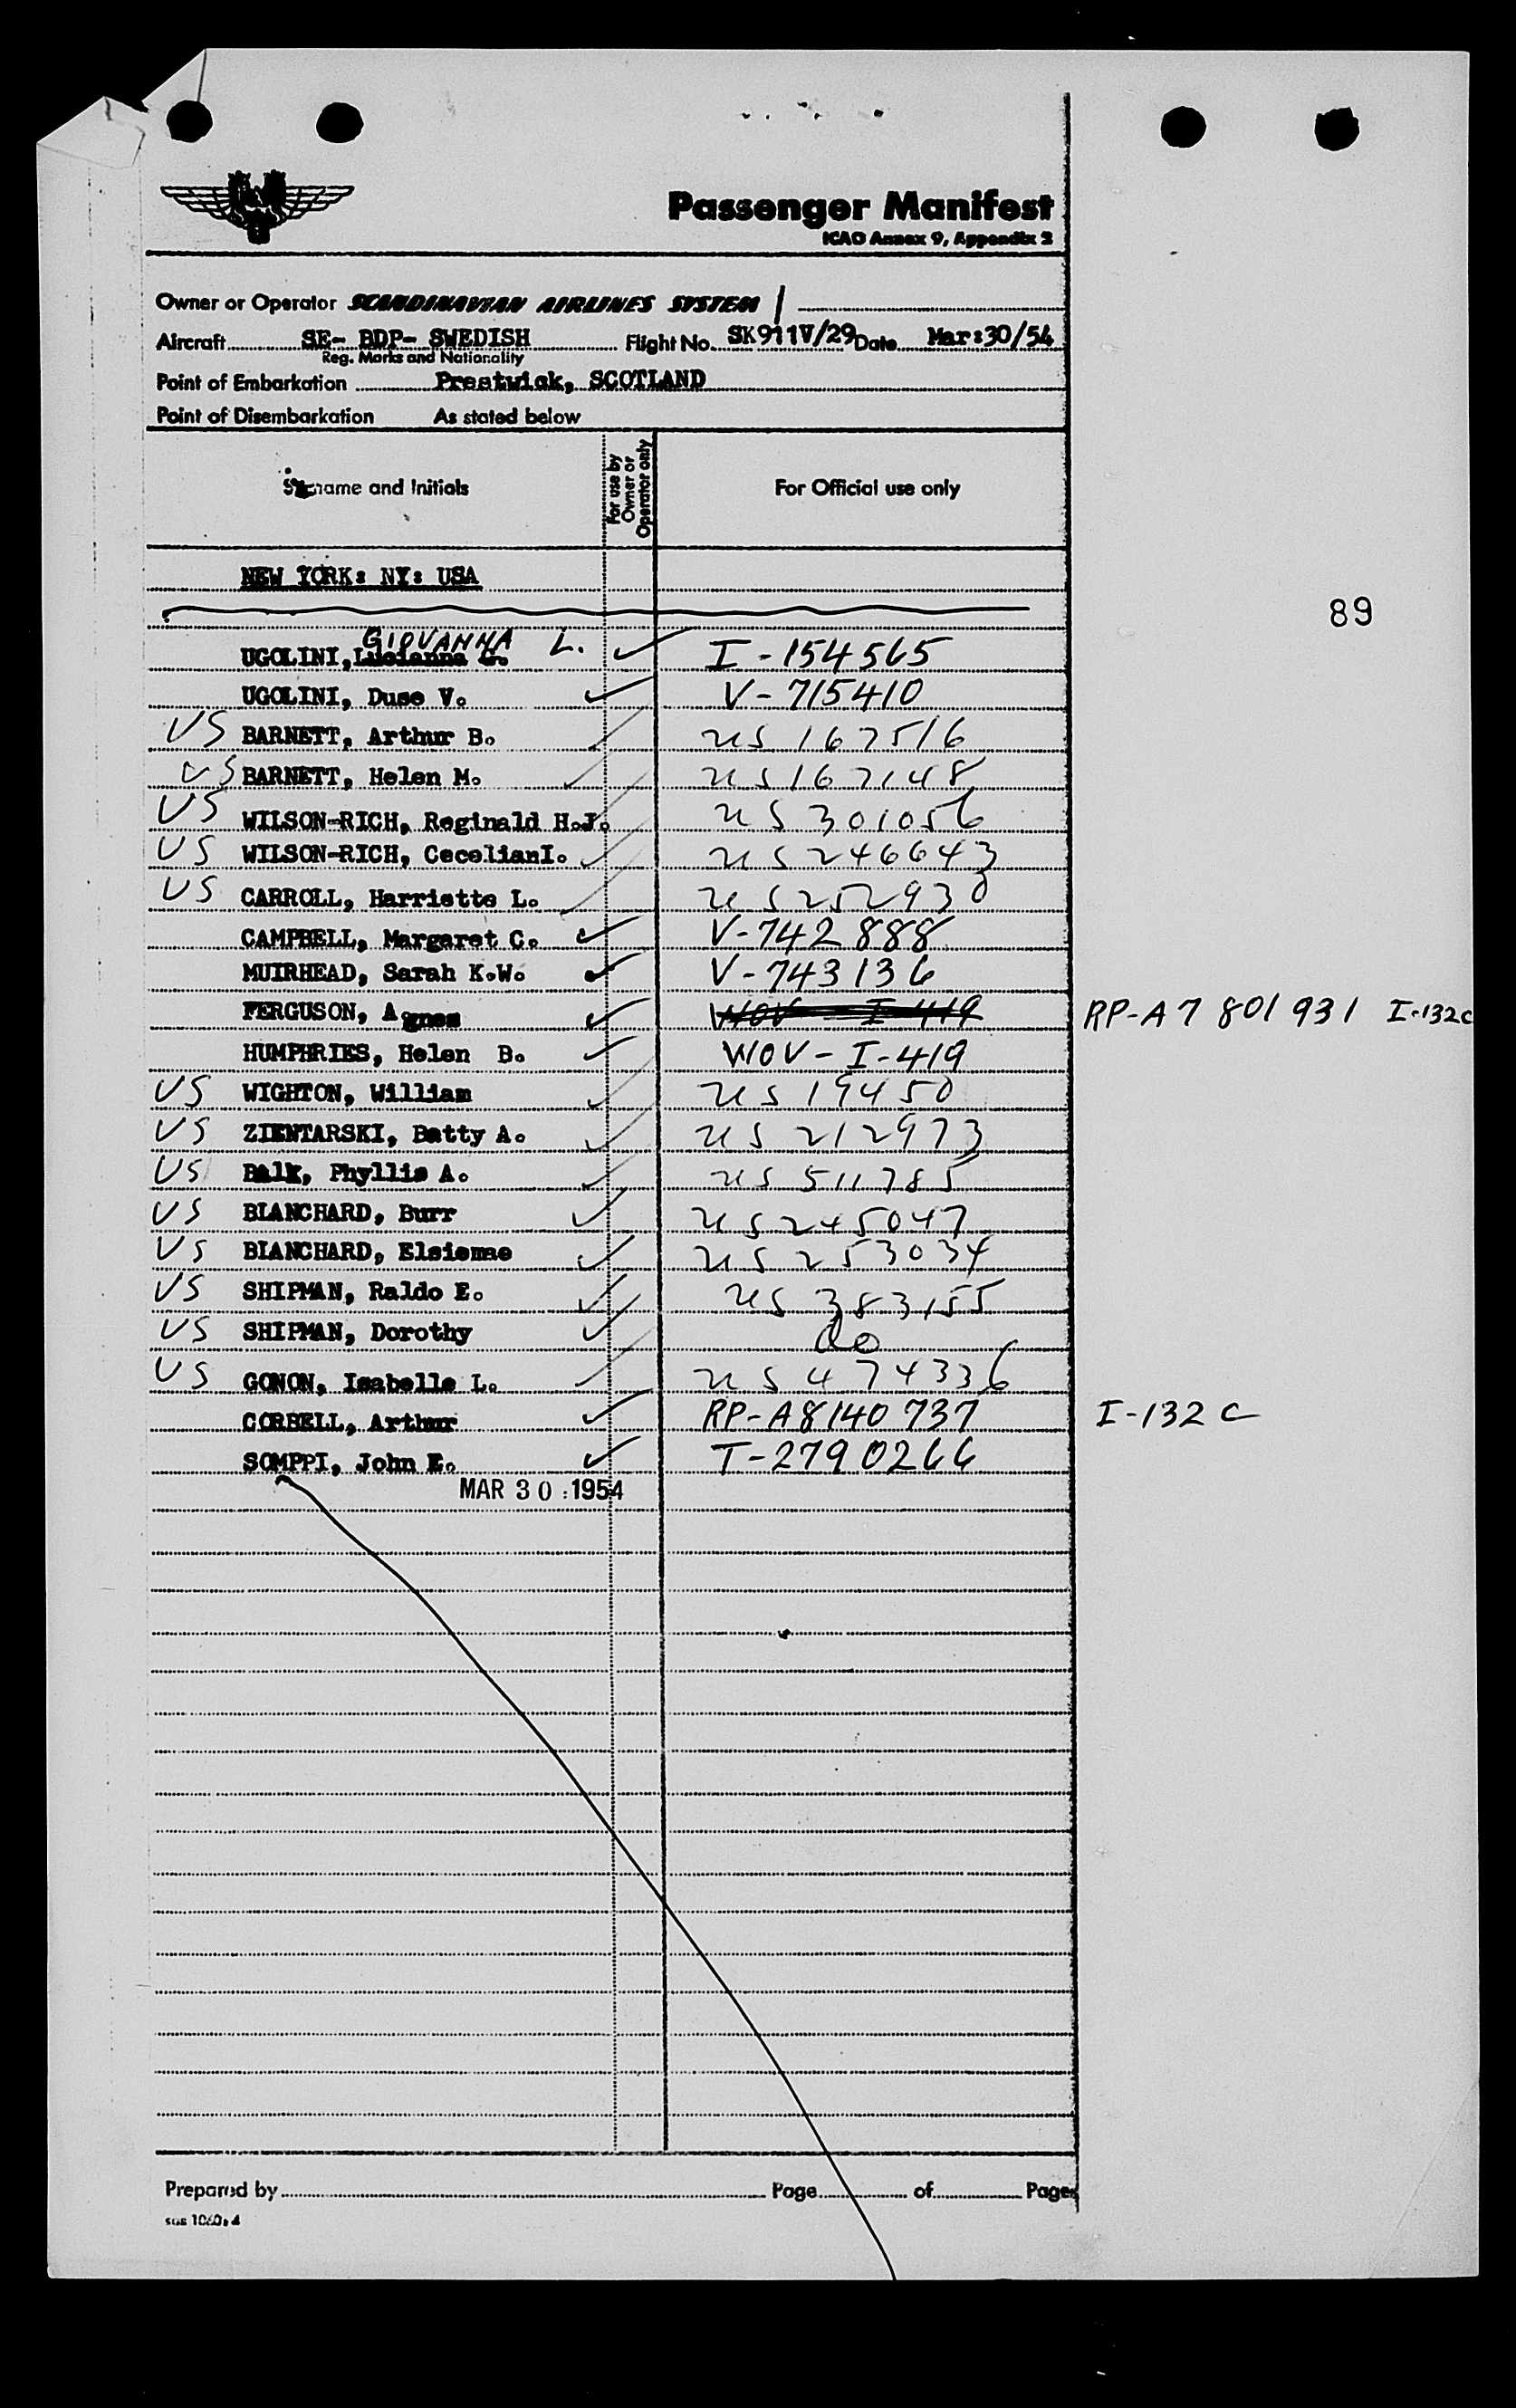 Passenger Manifest
ICAO Annex 9, Appendix 2
Owner or Operator SCANDINAVIAN AIRLINES SYSTEM
Aircraft SE- BDP- SWEDISH Flight No. SK911V/29 Date Mar:30/54
Reg. Marks and Nationality
Point of Embarkation Prestwick, SCOTLAND
Point of Disembarkation As stated below
Surname and Initials For use by Owner or Operator only For Official use only
NEW YORK: NY: USA
89
GIOVANNA L.
UGOLINI, Lucianna G. ✓ I-154565
UGOLINI, Duse V. ✓ V-715410
US BARNETT, Arthur B. ✓ US 167516
US BARNETT, Helen M. ✓ US 167148
US WILSON-RICH, Reginald H.J. US 301056
US WILSON-RICH, CecelianI. ✓ US 246643
US CARROLL, Harriette L. ✓ US 252930
CAMPBELL, Margaret C. ✓ V-742888
MUIRHEAD, Sarah K.W. ✓ V-743136
FERGUSON, Agnes ✓ WOV - I-419 RP-A7 801 931 I-132c
HUMPHRIES, Helen B. ✓ WOV-I-419
US WIGHTON, William ✓ US 19450
US ZIENTARSKI, Betty A. ✓ US 212973
US Balk, Phyllis A. ✓ US 511785
US BLANCHARD, Burr ✓ US 245047
US BLANCHARD, Elsiemae ✓ US 253034
US SHIPMAN, Raldo E. ✓ US 383155
US SHIPMAN, Dorothy ✓ do
US GONON, Isabelle L. ✓ US 474336
CORBELL, Arthur ✓ RP-A8140 737 I-132 C
SOMPPI, John E. ✓ T-2790266
MAR 30 1954
Prepared by Page of Pages